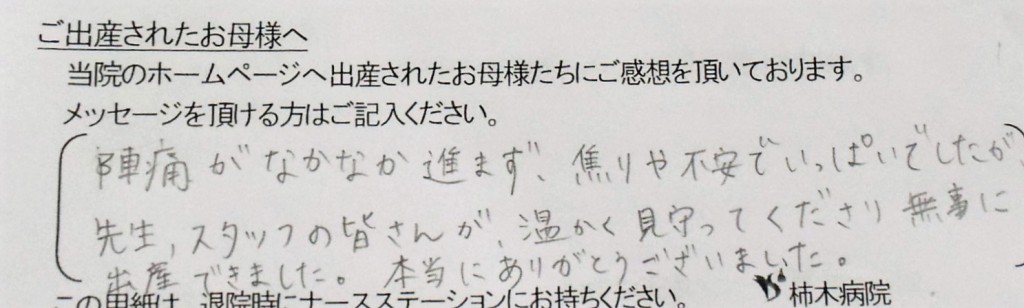 ご出産されたお母様へ
当院のホームページへ出産されたお母様たちにご感想を頂いております。
メッセージを頂ける方はご記入ください。
陣痛がなかなか進まず、焦りや不安でいっぱいでしたが、
先生、スタッフの皆さんが、温かく見守ってくださり無事に
出産できました。本当にありがとうございました。
この用紙は、退院時にナースステーションにお持ちください。
柿木病院